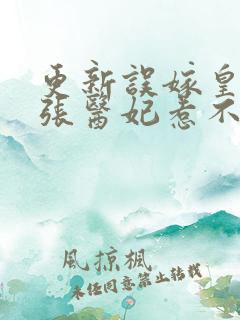 更新誤嫁皇
張醫妃惹不
風掠楓
未經同意禁止轉載